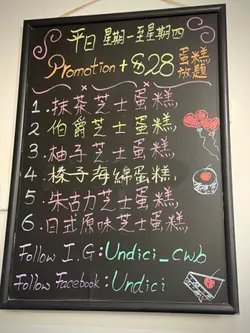 平日 星期一至星期四
Promotion + $28 蛋糕放題
1. 抹茶芝士蛋糕
2. 伯爵芝士蛋糕
3. 柚子芝士蛋糕
4. 榛子海綿蛋糕
5. 朱古力芝士蛋糕
6. 日式原味芝士蛋糕
Follow I.G : Undici_cwb
Follow Facebook : Undici